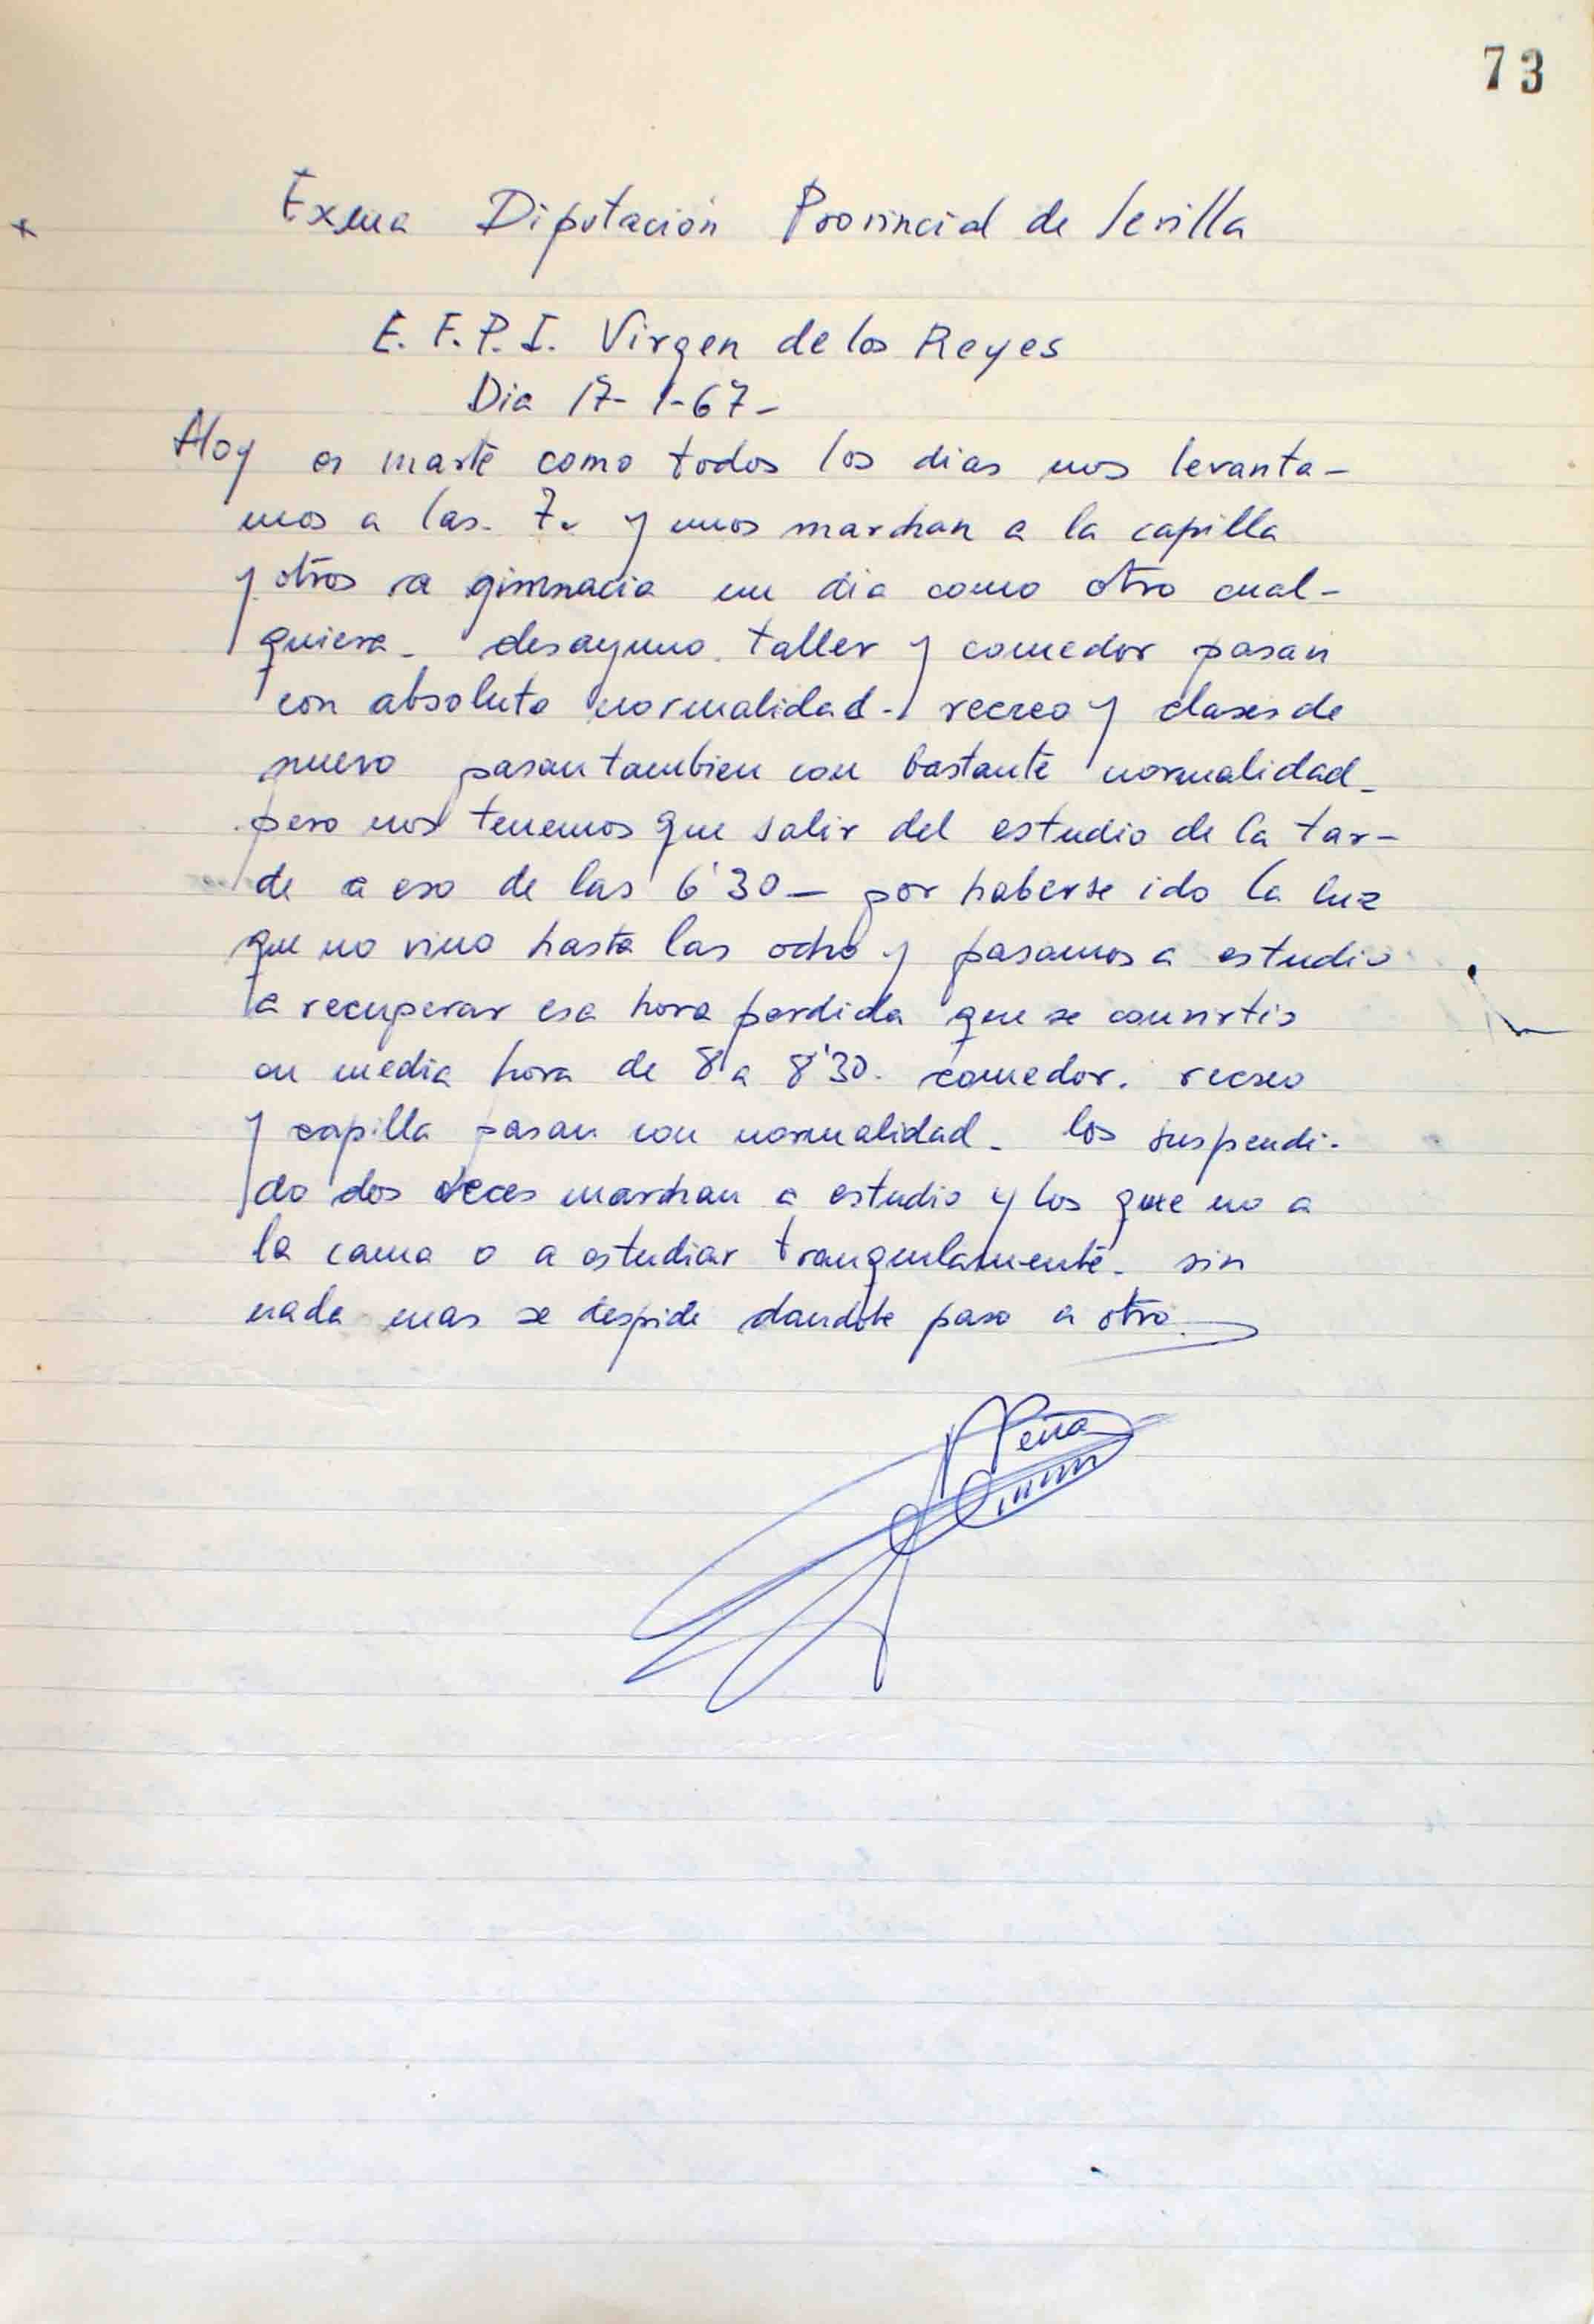 73
Exma Diputación Provincial de Sevilla
E. F. P. I. Virgen de los Reyes
Dia 17-1-67-
Hoy es marte como todos los dias nos levanta-
mos a las. 7. y unos marchan a la capilla
y otros a gimnacia un dia como otro cual-
quiera- desayuno. taller y comedor pasan
con absoluta normalidad- recreo y clases de
nuevo pasan tambien con bastante normalidad-
pero nos tenemos que salir del estudio de la tar-
de a eso de las 6'30- por haberse ido la luz
que no vino hasta las ocho y pasamos a estudio
a recuperar esa hora perdida que se convirtio
en media hora de 8 a 8'30. comedor. recreo
y capilla pasan con normalidad- los suspendi-
do dos veces marchan a estudio y los que no a
la cama o a estudiar tranquilamente- sin
nada mas se despide dandole paso a otro.
Peña